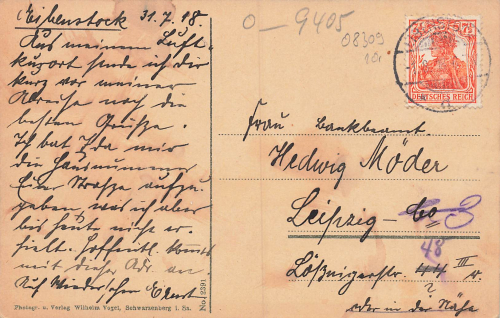 Eibenstock 31.7.18.
Aus meinem Luft-
kurort sende ich dir
kurz vor meiner
Abreise noch die
besten Grüße.
Ich bat Ida mir
die Hausnummer
Eurer Straße aufzu-
geben, was ich aber
bis heute nicht er-
hielt. Hoffentl. kommt
mit dieser Adr. an.
Auf Wiedersehen Ernst
Photogr. u. Verlag Wilhelm Vogel, Schwarzenberg i. Sa.
No. 2391
O - 9405
08309
10,-
7½ 7½
DEUTSCHES REICH
Frau Bankbeamt
Hedwig Möder
Leipzig- Co 3
48
Lößnigerstr. 44 III r.
?
oder in der Nähe